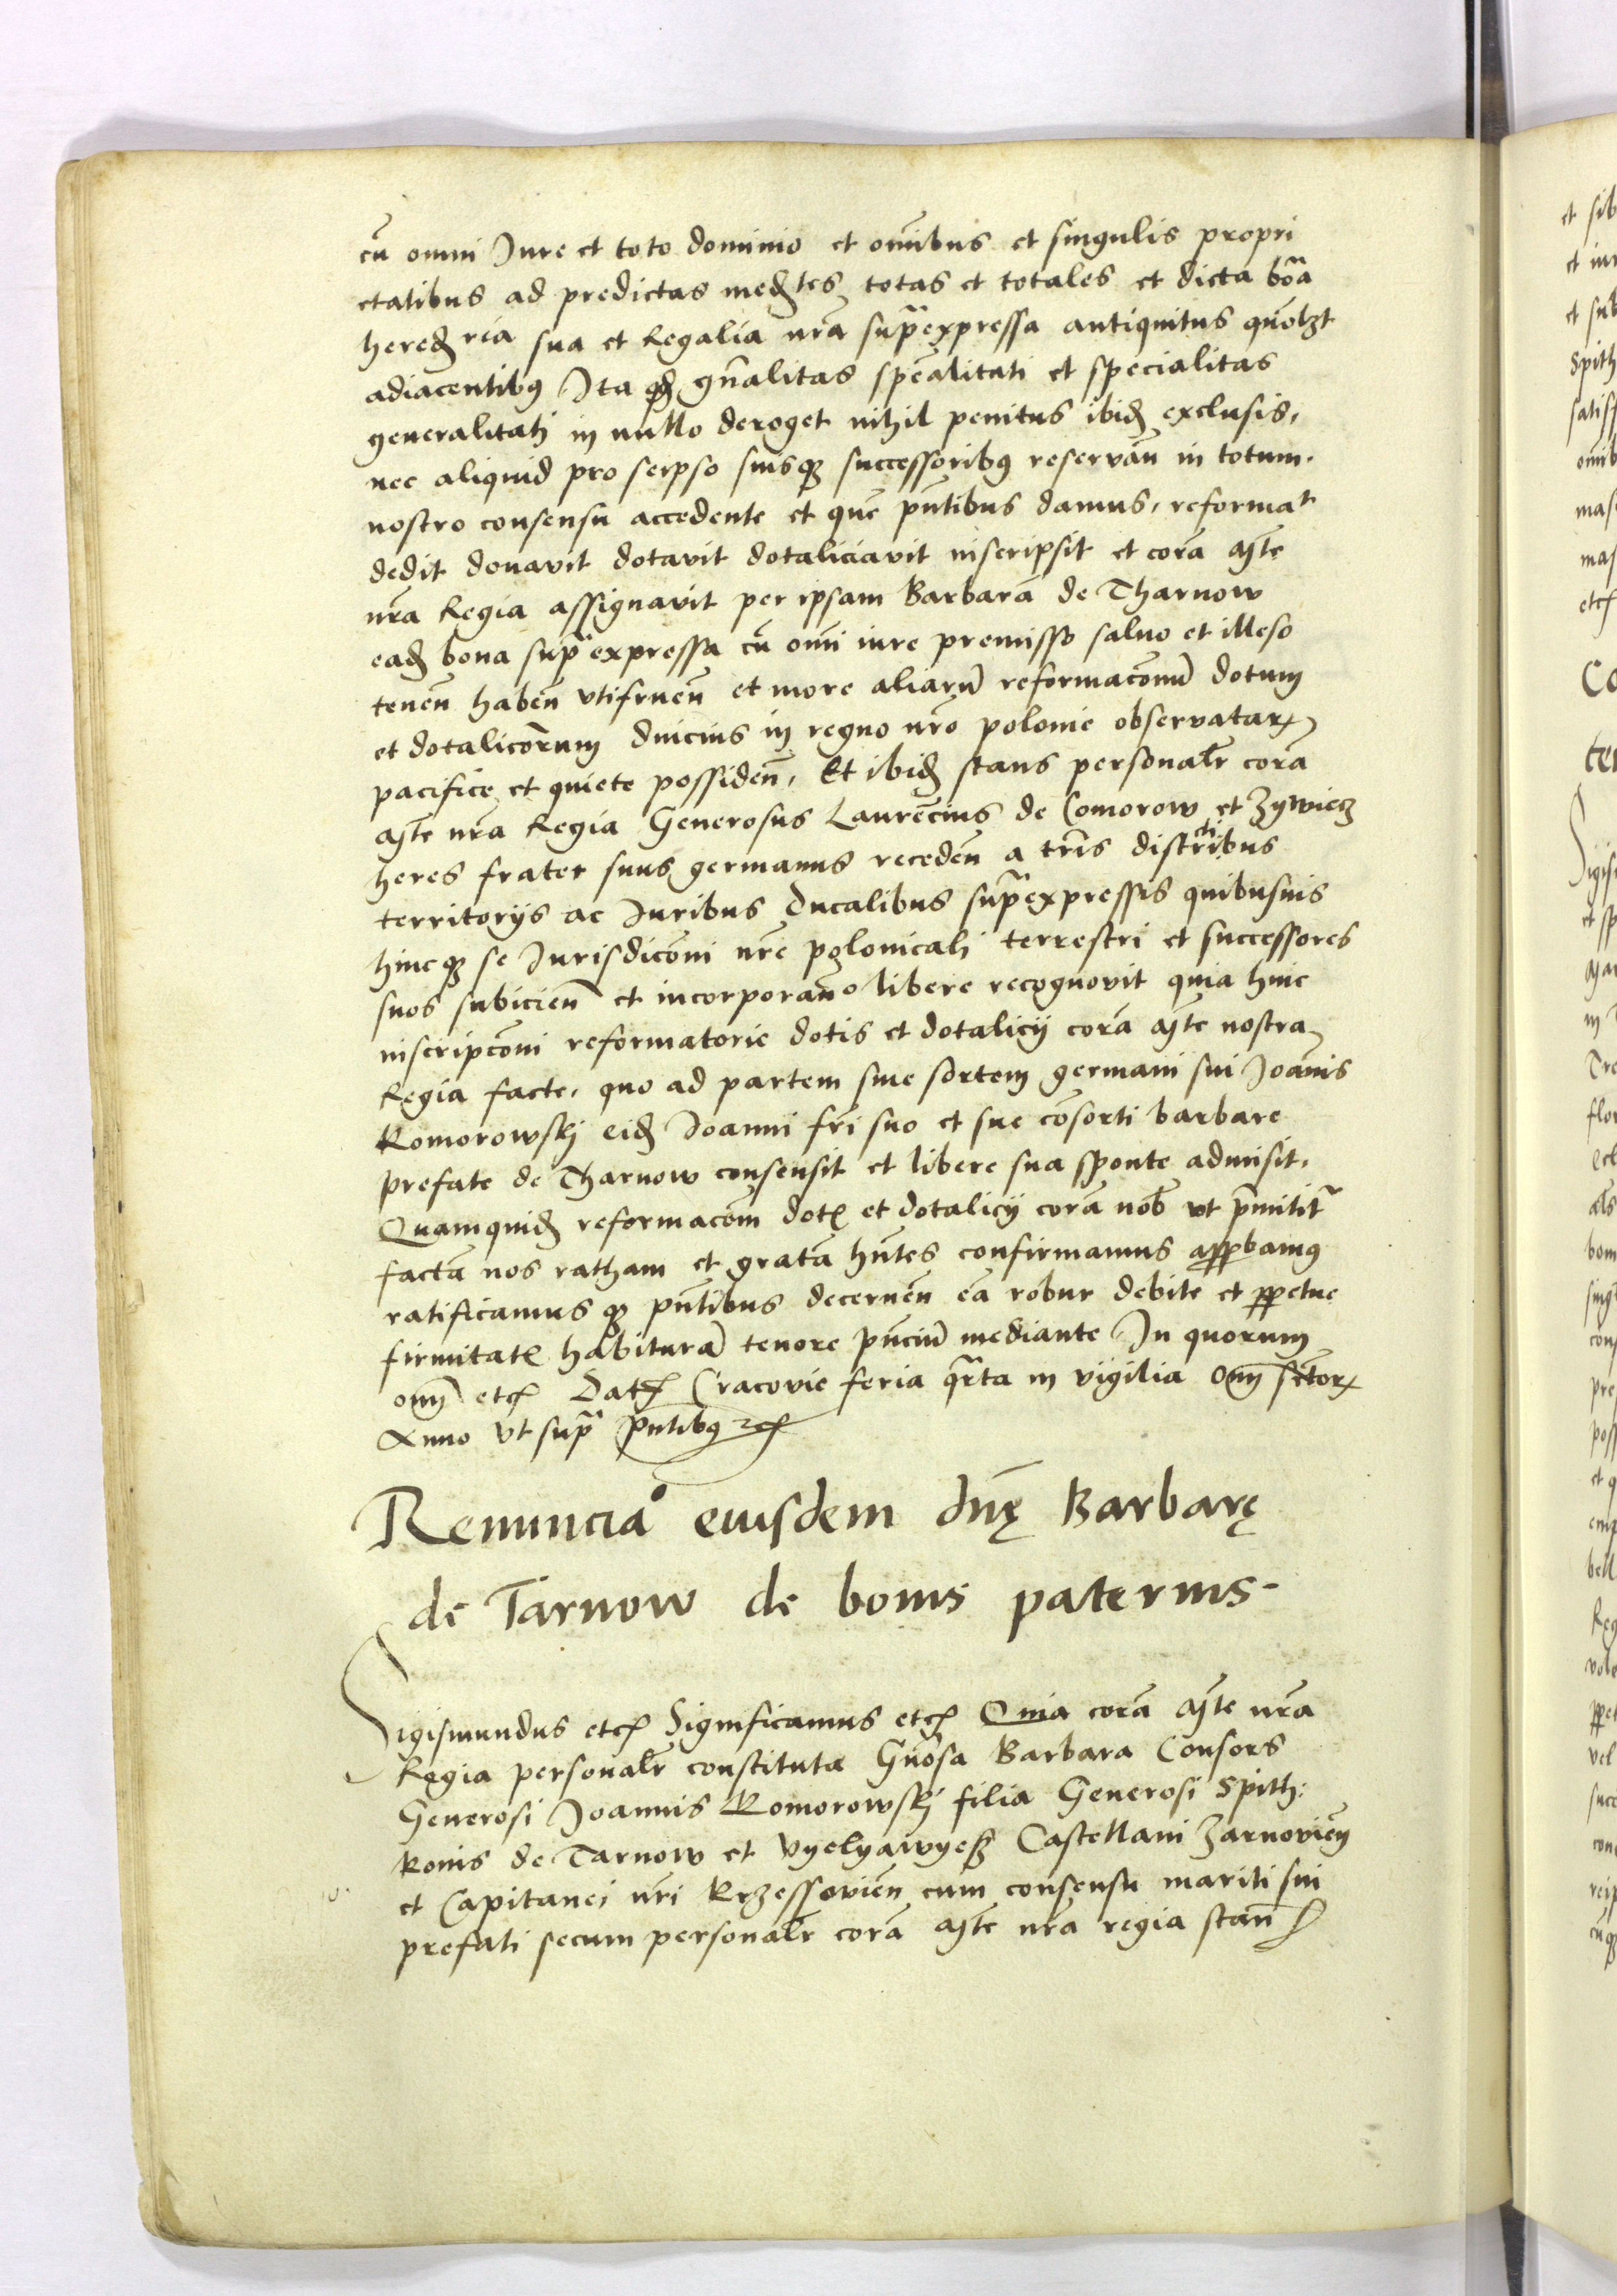 cū omni Jure et toto dominio et om̄ibus et singulis propri
etatibus ad predictas medtes totas et totales et dicta bōa
heredria sua et Regalia nr̄a supraexpressa antiquitus quōlzt
adiacentibus Ita qd gn̄alitas spēalitati et specialitas
generalitati in nullo deroget nihil penitus ibid exclusis,
nec aliquid pro seipso suisq successoribus reservān in totum.
nostro consensu accedente et quē pn̄tibus damus, reformat
dedit donavit dotavit dotaliciavit inscripsit et corā mt̄e
nr̄a Regia assignavit per ipsam Barbarā de Tharnow
ead bona supra expressa cū om̄i iure premisso salvo et illeso
tenen̄ haben̄ utifruen̄ et more aliarū reformacōnū dotum
et dotaliciorum diucius in regno nr̄o polonie observatar
pacifice et quiete possiden̄, Et ibid stans personalr̄ corā
mt̄e nr̄a Regia Generosus Laurēcius de Comorow et Zywiecz
heres frater suus germanus receden̄ a trr̄is districtibus
territorijs ac Juribus Ducalibus supraexpressis quibusvis
hincq se Jurisdicōni nr̄e polonicali terrestri et successores
suos subicien̄ et incorporan̄ libere recognovit quia huic
inscripcōni reformatorie dotis et dotalicij corā mt̄e nostra
Regia facte, quo ad partem sive sortem germani sui Joānis
Komorowskj eid Joanni fr̄i suo et sue cōsorti barbare
prefate de Tharnow consensit et libere sua sponte admisit,
Quamquid reformacōem dotis et dotalicij corā nob̄ ut p̄mititr
factā nos ratham et gratā hn̄tes confirmamus approbamus
ratificamusq pn̄tibus decernen̄ eā robur debite et perpetue
firmitatis habiturā tenore pn̄ciū mediante In quorum
om̄ etc Dat Cracovie feria qrta in vigilia Om̄ sctor
Anno ut supra pn̄tibus etc
Renuncia° eiusdem dn̄ę Barbarę
de Tarnow de bonis paternis-
Sigismundus etc Significamus etc Quia corā mt̄e nr̄a
Regia personalr̄ constituta Gn̄osa Barbara Consors
Generosi Joannis Komorowskj filia Generosi Spith:
konis de Tarnow et Vyelyawyesz Castellani Zarnovien̄
et Capitanei nr̄i Rzessovien̄ cum consensu mariti sui
prefati secum personalr̄ corā mt̄e nr̄a regia stan̄